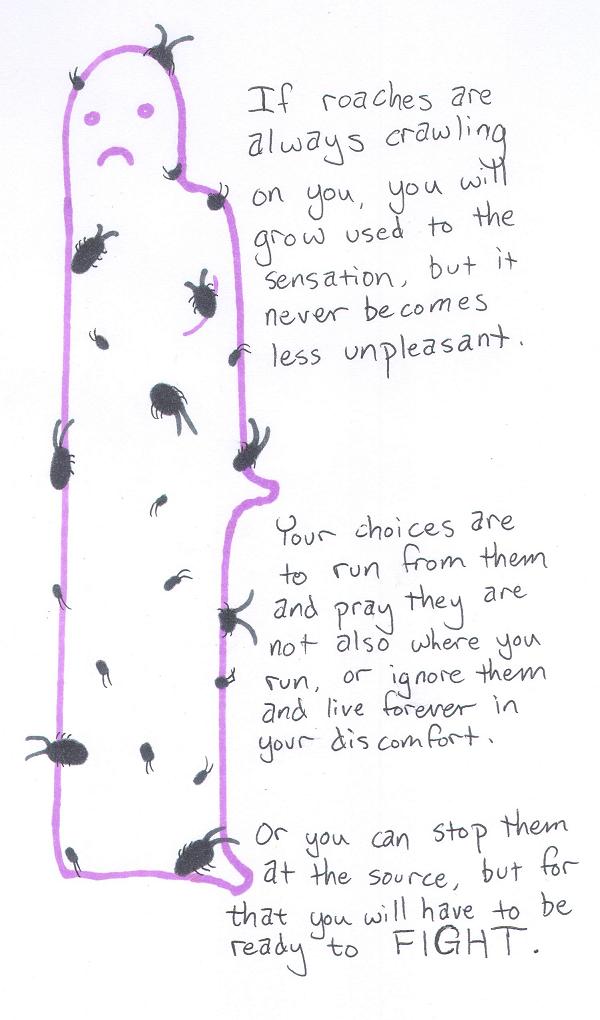 If roaches are
always crawling
on you, you will
grow used to the
sensation, but it
never becomes
less unpleasant.
Your choices are
to run from them
and pray they are
not also where you
run, or ignore them
and live forever in
your discomfort.
Or you can stop them
at the source, but for
that you will have to be
ready to FIGHT.